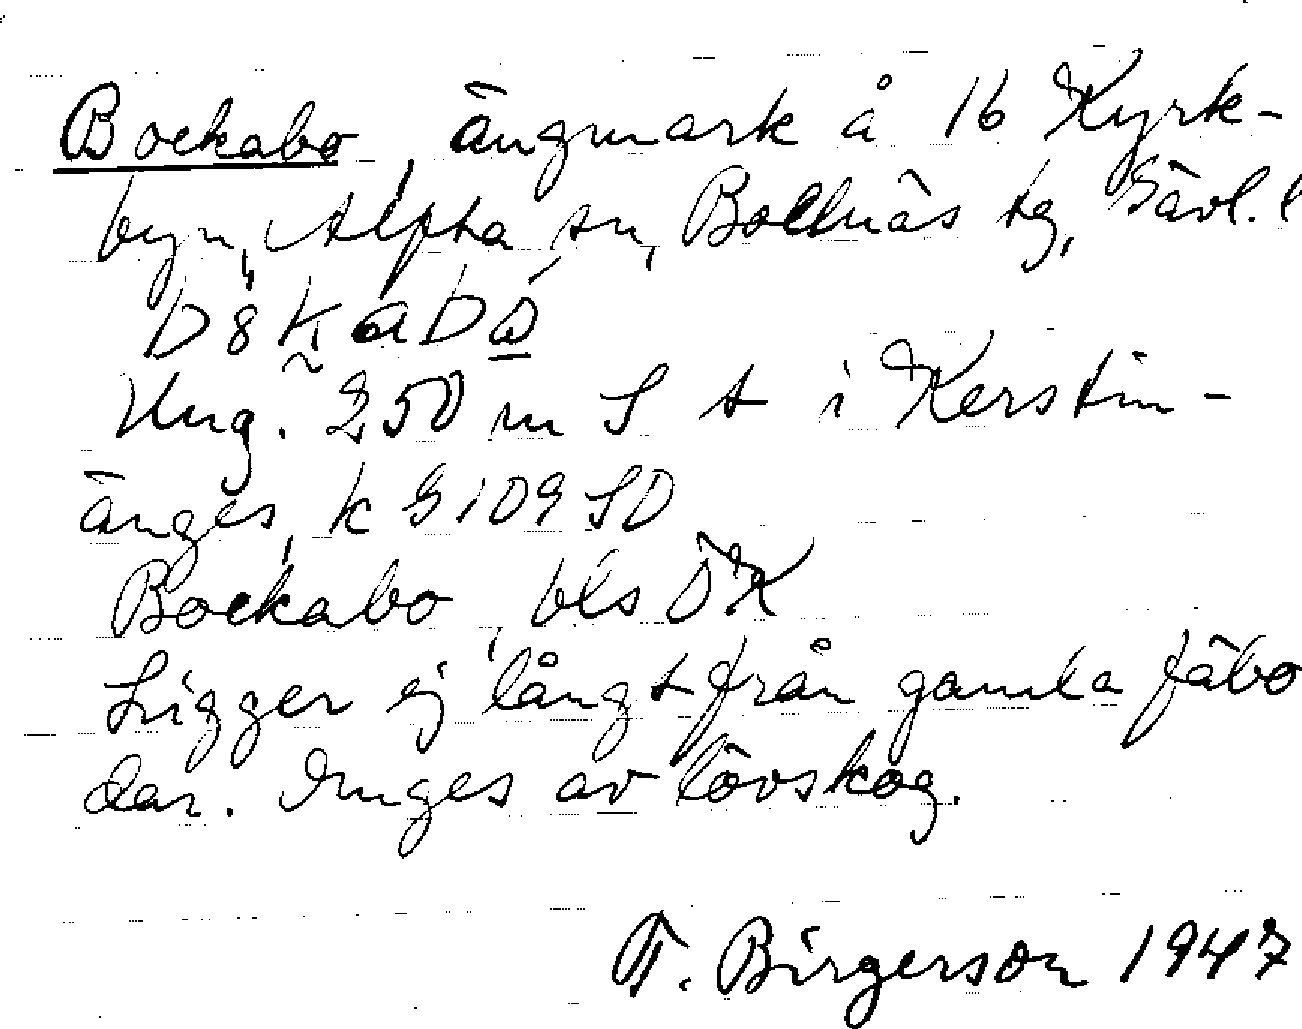 Bockabo, ängmark å 16 Kyrk-
byn, Alfta sn, Bollnäs tg, Gävl. l
Ung. 250 m S t i Kerstin-
änges, k G 109 SO
Bockabo, bls ÖK
Ligger ej långt från gamla fäbo
dar. Inuges av lövskog.
T. Birgerson 1947